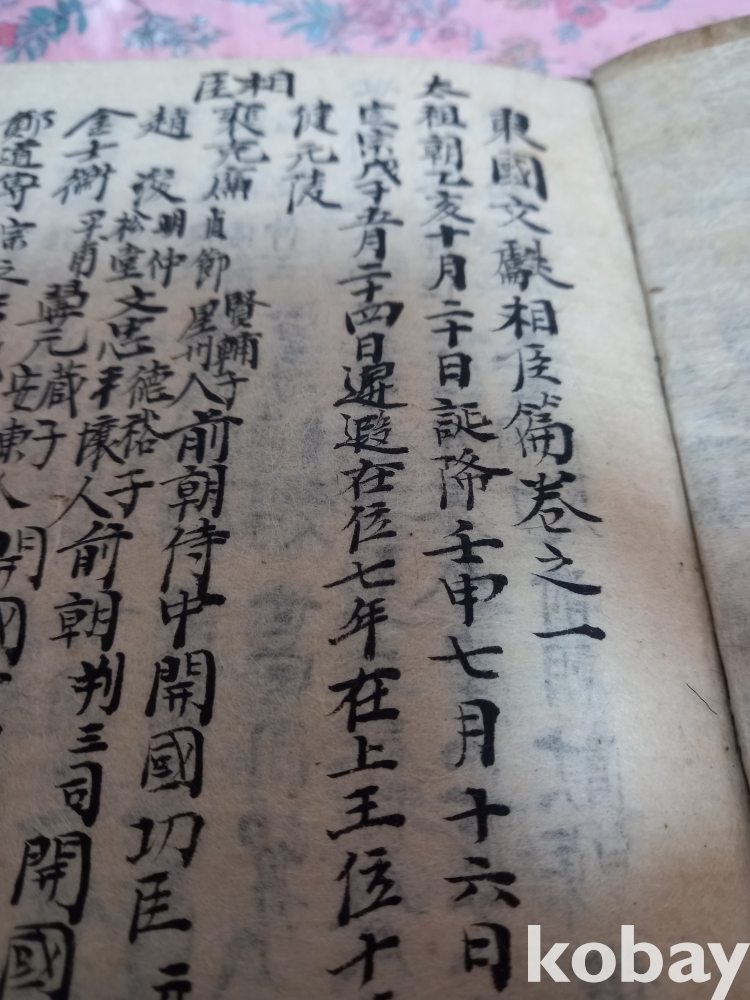 東國文獻相臣篇卷之一
太祖朝乙亥十月二十日誕降壬申七月十六日
宗戊子五月二十四日遐在位七年在上王位十
健元陵
相臣
裵克廉貞節 賢輔子 星州人前朝侍中開國功臣
趙浚明仲松堂文忠德裕子平壤人前朝判三司開國
金士衡平甫翼元蕆子安東人開國
鄭道傳宗之
kobay